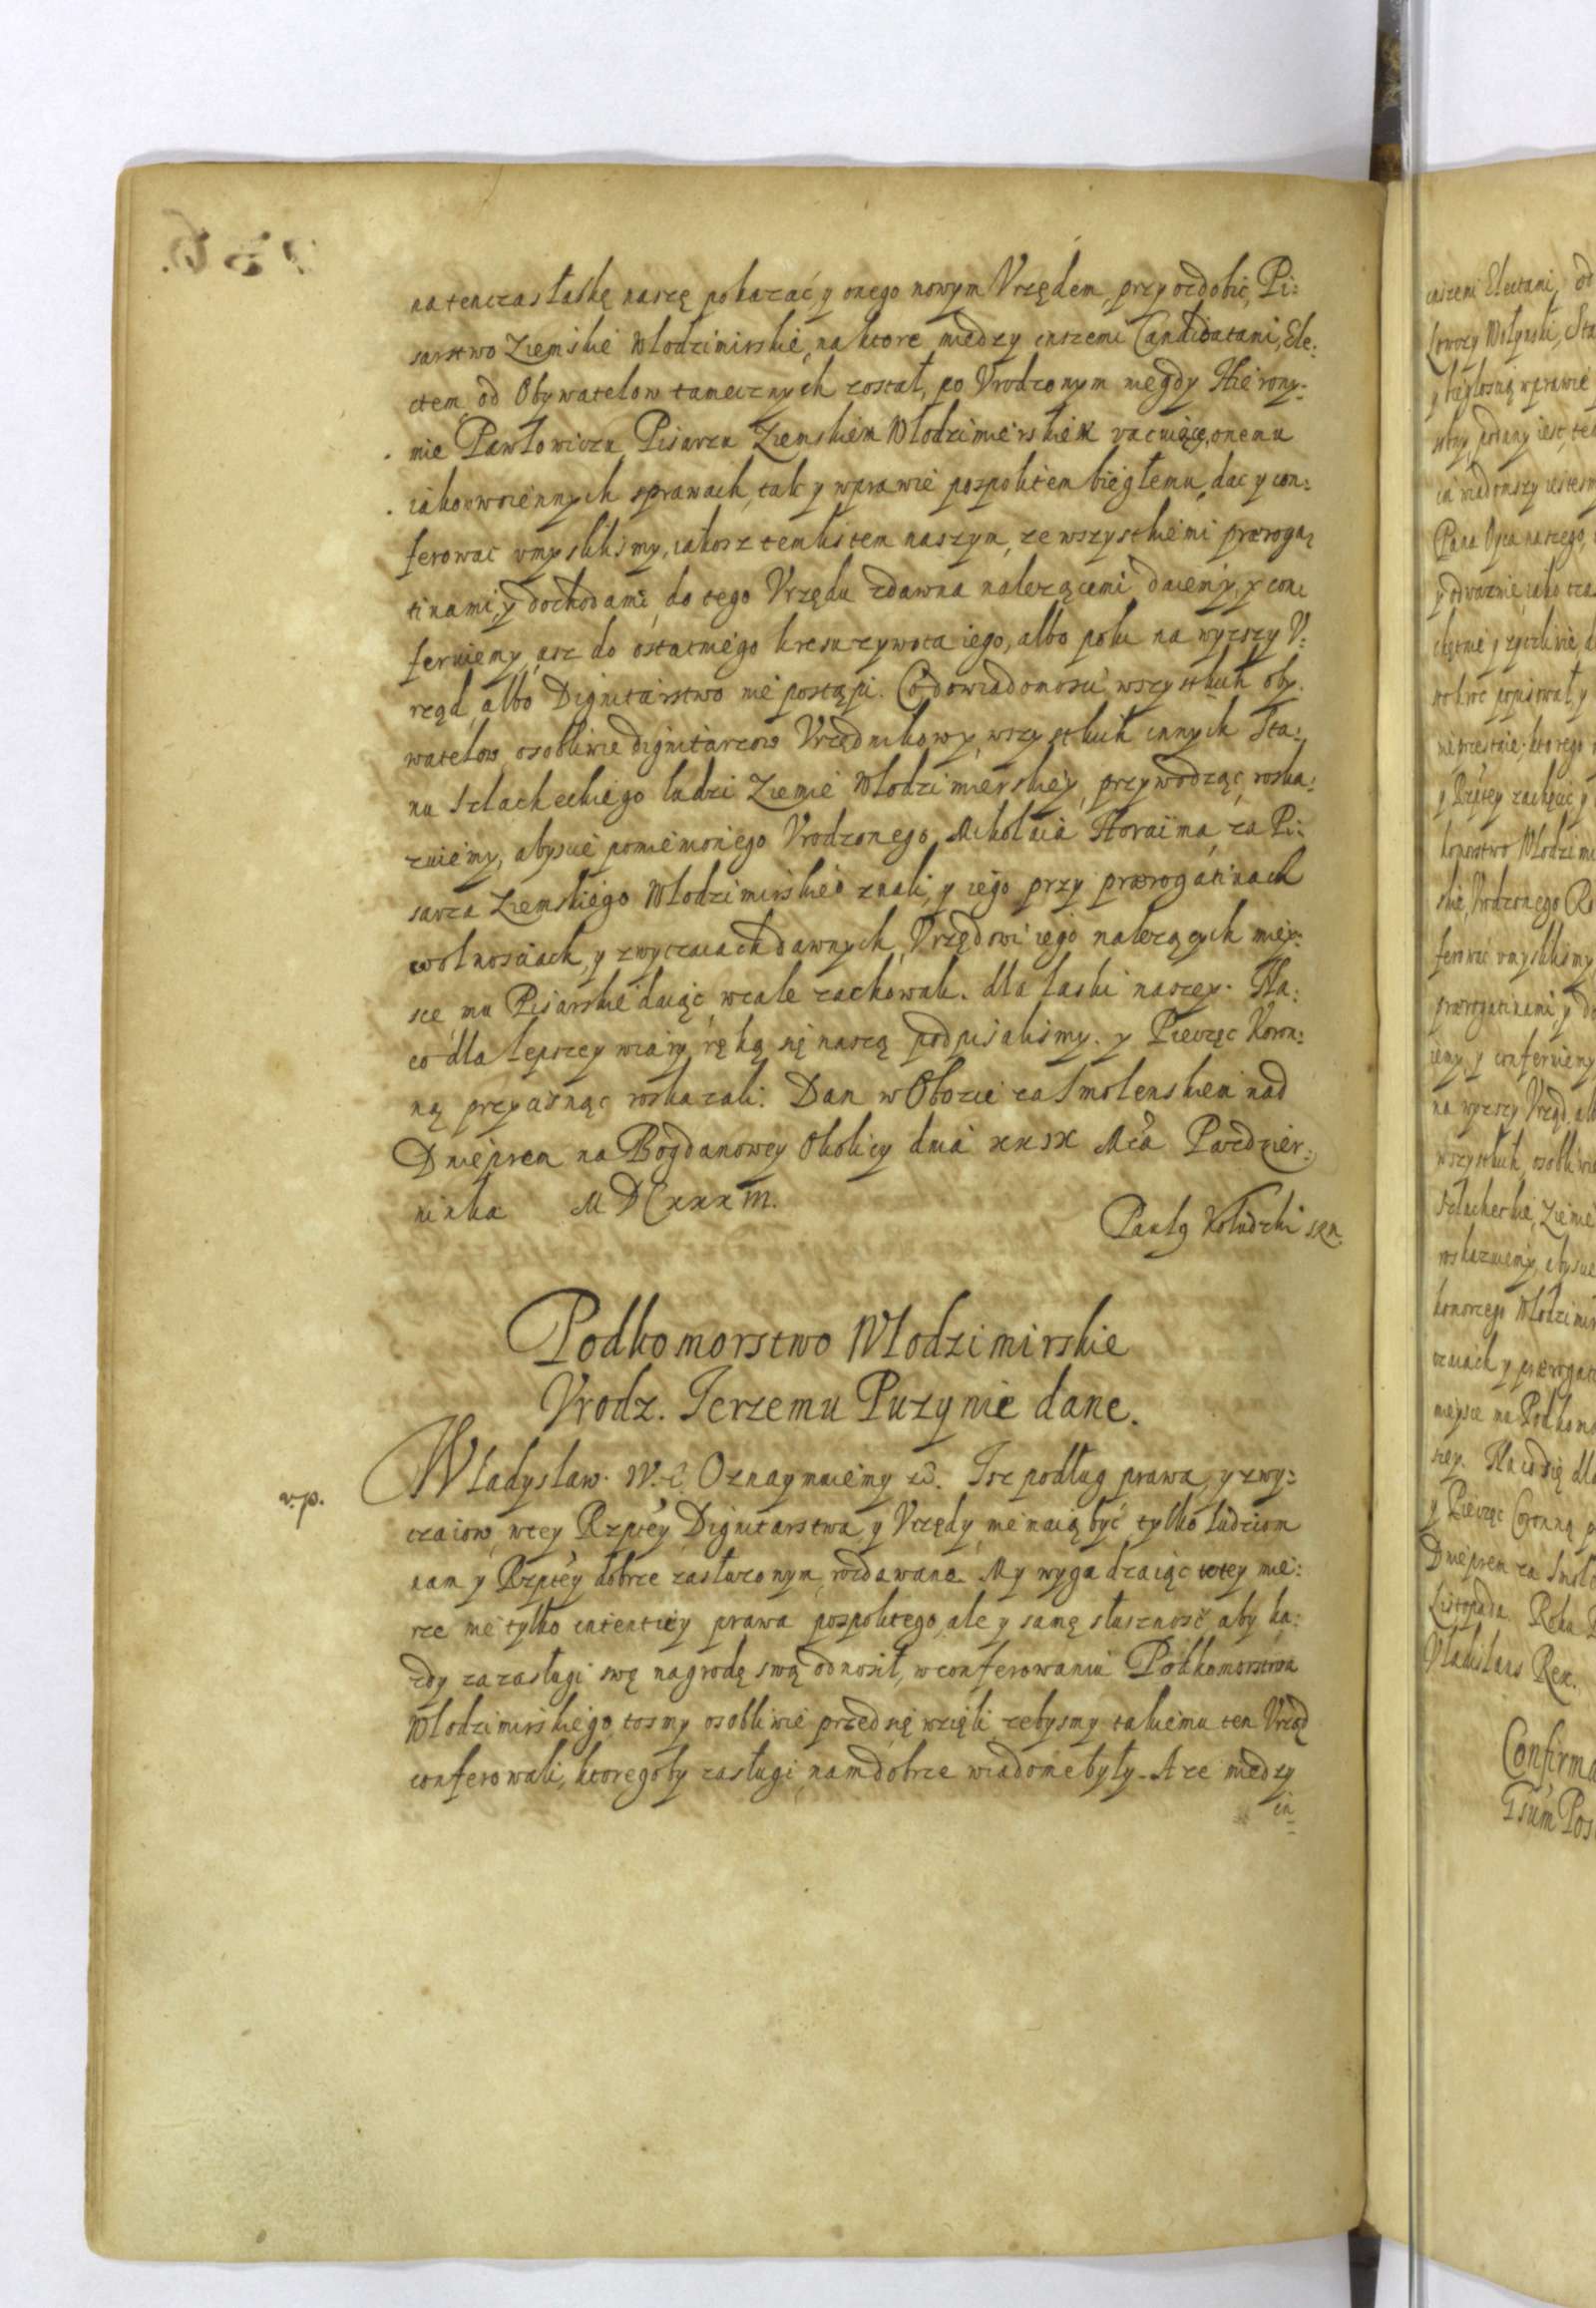 na ten czas łaskę naszę pokazać, y onego nowym Vrzędem, przyozdobić, Pi:
sarstwo Ziemskie Włodzimirskie, na ktore miedzy inszemi Candidatami, Ele:
ctem od Obywatelow tamecznych został, po Vrodzonym niegdy Hierony:
mie Pawłowiczu Pisarzu Ziemskiem Włodzimierskiem vacuiące, onemu
iako w woiennych sprawach, tak y w prawie pospolitem biegłemu, dac y con:
ferowac vmyslilismy, iakosz tem listem naszym, ze wszystkiemi præroga:
tiuami, y dochodami, do tego Vrzędu zdawna należącemi daiemy, y con:
feruiemy, asz do ostatniego kresu zywota iego, albo poki na wyzszy V:
rząd, albo Dignitarstwo nie postąpi. Co do wiadomosci wszystkich oby:
watelow, osobliwie dignitarzow Vrzędnikow y wszystkich innych Sta:
nu Szlacheckiego ludzi Ziemie Włodzimierskiey, przywodząc, roska:
zuiemy, abyscie pomienionego Vrodzonego Mikołaia Horaima, za Pi:
sarza Ziemskiego Włodzimirskie znali, y iego przy prærogatiuach
wolnosciach, y zwyczaiach dawnych, Vrzędowi iego nalezących miey:
sce mu Pisarskie daiąc, wcale zachowali. dla łaski naszey. Na
co dla lepszey wiary, ręką się naszą podpisalismy. y Pieczęc Koron:
ną przycisnąc roskazali. Dan w Obozie za Smolenskiem nad
Dnieprem na Bogdanowey Okolicy dnia xxix Mca Pazdzier:
nika MDCxxxiii.
Paulg Kołudzki sRM.
Podkomorstwo Włodzimirskie
Vrodz. Jerzemu Puzynie dane.
v.p.
Władysław. IV. &c Oznaymuiemy &c. Isz podług prawa, y zwy:
czaiow, w tey Rzptey Dignitarstwa, y Vrzędy, nie maią być tylko ludziom
nam y Rzptey dobrze zasłuzonym, rozdawane. My wygadzaiąc w tey mie:
rze nie tylko intentiey prawa pospolitego, ale y samę słusznosć, aby ka:
żdy za zasługi swę nagrodę swą odnosił, w conferowaniu Podkomorstwa
Włodzimirskiego, tosmy osobliwie przed się wzięli, zebysmy takiemu ten Vrząd
conferowali, ktoregoby zasługi, nam dobrze wiadome były. A ze miedzy
in
inszemi Electami, od
Łowczy Wołynski, Sta
y biegłosną w prawie
Pana Oyca naszego
y odwaznie, iako cza
chętnie y zyczliwie
y Rzptey zachęcic y
komorstwo Włodzimi
skie, Vrodzonego
ferowac vmyslilismy
prærogatiuami, y do
iemy, y conferuiemy
na wyzszy Vrząd, alb
wszystkich, osobliwie
Szlacheckie, Ziemie
roskazuiemy, abyscie
komorzego Włodzimir
czaiach y prærogati
mieysce mu Podkomo
szey. Na co się dla
y Pieczęc Coronną p
Dnieprem za Smole
Listopada Roku
Vladislaus Rex.
Confirma
Gsum Pos